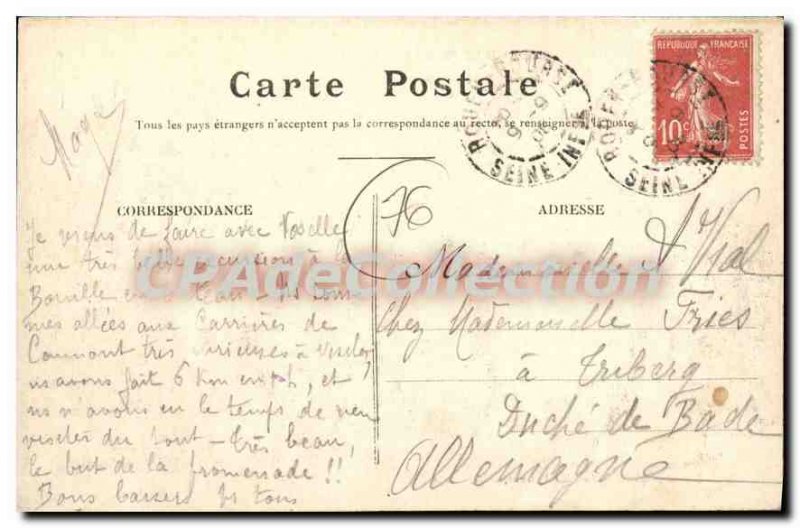 Carte Postale
Tous les pays étrangers n'acceptent pas la correspondance au recto, se renseigner à la poste
REPUBLIQUE FRANÇAISE
10c
POSTES
SEINE INFRE
SEINE INFRE
76
CORRESPONDANCE
ADRESSE
Je viens de faire avec
une très belle excursion à la
CPAdeCollection
mes allées aux Carrières de
Caumont très curieuses à visiter,
ns avons fait 6 km, et
ns n'avons eu le temps de rien
visiter du tout - très beau,
le but de la promenade !!
Bons baisers ps tous
Mademoiselle A Vial
Chez Mademoiselle Fries
à Triberg
Duché de Bade
Allemagne